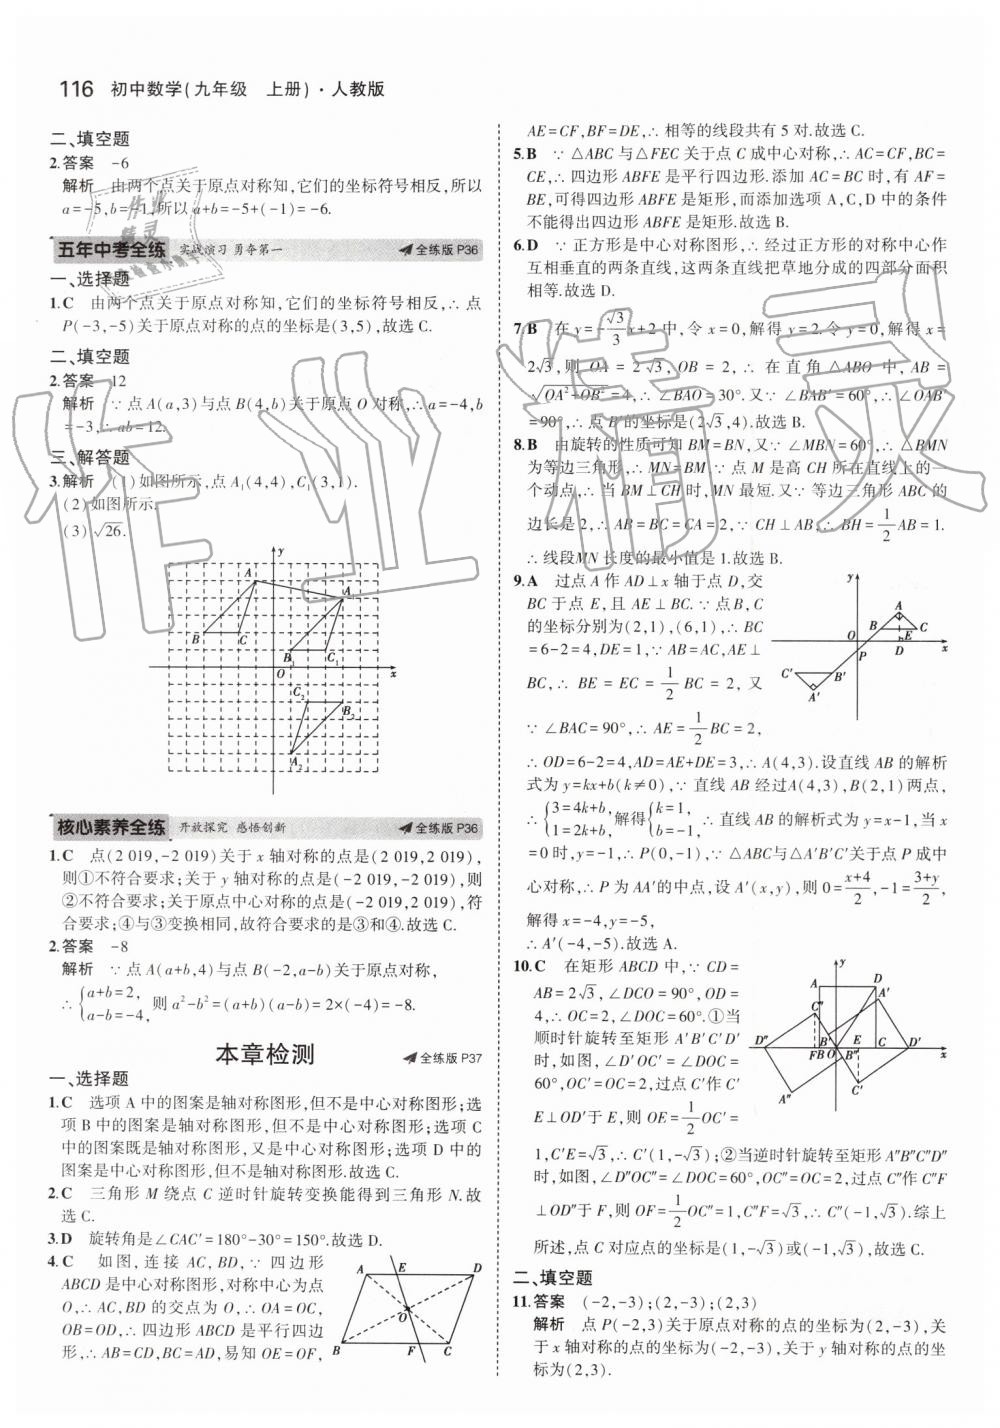 116 初中数学(九年级 上册)·人教版
二、填空题
2.答案 -6
解析 由两个点关于原点对称知,它们的坐标符号相反,所以
a=-5,b=-1,所以 a+b=-5+(-1)=-6.
五年中考全练 实战演习 勇夺第一 全练版 P36
一、选择题
1.C 由两个点关于原点对称知,它们的坐标符号相反,∴点
P(-3,-5)关于原点对称的点的坐标是(3,5),故选 C.
二、填空题
2.答案 12
解析 ∵点 A(a,3)与点 B(4,b)关于原点 O 对称,∴a=-4,b
=-3,∴ab=12.
三、解答题
3.解析 (1)如图所示,点 A₁(4,4),C₁(3,1).
(2)如图所示.
(3)√26.
y
A
A
B
C
B₁
C₁
O
x
C₂
B₂
A₂
核心素养全练 开放探究 感悟创新 全练版 P36
1.C 点(2 019,-2 019)关于 x 轴对称的点是(2 019,2 019),
则①不符合要求;关于 y 轴对称的点是(-2 019,-2 019),则
②不符合要求;关于原点中心对称的点是(-2 019,2 019),符
合要求;④与③变换相同,故符合要求的是③和④.故选 C.
2.答案 -8
解析 ∵点 A(a+b,4)与点 B(-2,a-b)关于原点对称,
∴{a+b=2, a-b=-4, 则 a²-b²=(a+b)(a-b)=2×(-4)=-8.
本章检测 全练版 P37
一、选择题
1.C 选项 A 中的图案是轴对称图形,但不是中心对称图形;选
项 B 中的图案是轴对称图形,但不是中心对称图形;选项 C
中的图案既是轴对称图形,又是中心对称图形;选项 D 中的
图案是中心对称图形,但不是轴对称图形.故选 C.
2.C 三角形 M 绕点 C 逆时针旋转变换能得到三角形 N.故
选 C.
3.D 旋转角是∠CAC′=180°-30°=150°.故选 D.
4.C 如图,连接 AC,BD,∵四边形
ABCD 是中心对称图形,对称中心为点
O,∴AC,BD 的交点为 O,∴OA=OC,
OB=OD,∴四边形 ABCD 是平行四边
形,∴AB=CD,BC=AD,易知 OE=OF,
A E D
O
B F C
AE=CF,BF=DE,∴相等的线段共有 5 对.故选 C.
5.B ∵△ABC 与△FEC 关于点 C 成中心对称,∴AC=CF,BC=
CE,∴四边形 ABFE 是平行四边形.添加 AC=BC 时,有 AF=
BE,可得四边形 ABFE 是矩形,而添加选项 A,C,D 中的条件
不能得出四边形 ABFE 是矩形.故选 B.
6.D ∵正方形是中心对称图形,∴经过正方形的对称中心作
互相垂直的两条直线,这两条直线把草地分成的四部分面积
相等.故选 D.
7.B 在 y=-√3/3x+2 中,令 x=0,解得 y=2.令 y=0,解得 x=
2√3,则 OA=2√3,OB=2,∴在直角△ABO 中,AB=
√OA²+OB²=4,∴∠BAO=30°.又∵∠BAB′=60°,∴∠OAB′
=90°,∴点 B′的坐标是(2√3,4).故选 B.
8.B 由旋转的性质可知 BM=BN,又∵∠MBN=60°,∴△BMN
为等边三角形,∴MN=BM.∵点 M 是高 CH 所在直线上的一
个动点,∴当 BM⊥CH 时,MN 最短.又∵等边三角形 ABC 的
边长是 2,∴AB=BC=CA=2,∵CH⊥AB,∴BH=1/2AB=1.
∴线段MN 长度的最小值是 1.故选 B.
9.A 过点 A 作 AD⊥x 轴于点 D,交
BC 于点 E,且 AE⊥BC.∵点 B,C
的坐标分别为(2,1),(6,1),∴BC
=6-2=4,DE=1,∵AB=AC,AE⊥
BC,∴BE=EC=1/2BC=2,又
∵∠BAC=90°,∴AE=1/2BC=2,
y
A
B E C
O D x
P
C′ B′
A′
∴OD=6-2=4,AD=AE+DE=3,∴A(4,3).设直线 AB 的解析
式为 y=kx+b(k≠0),∵直线 AB 经过A(4,3),B(2,1)两点,
∴{3=4k+b, 1=2k+b, 解得{k=1, b=-1, ∴直线 AB 的解析式为 y=x-1,当 x
=0 时,y=-1,∴P(0,-1),∵△ABC与△A′B′C′关于点 P 成中
心对称,∴P 为 AA′的中点,设 A′(x,y),则 0=(x+4)/2,-1=(3+y)/2,
解得 x=-4,y=-5,
∴A′(-4,-5).故选 A.
10.C 在矩形 ABCD 中,∵CD=
AB=2√3,∠DCO=90°,OD=
4,∴OC=2,∠DOC=60°.①当
顺时针旋转至矩形 A′B′C′D′
时,如图,∠D′OC′=∠DOC=
60°,OC′=OC=2,过点 C′作 C′
E⊥OD′于 E,则 OE=1/2OC′=
y
A D
C″ A′
D″ F B B′ O B″ E C D′ x
A″ C′
1,C′E=√3,∴C′(1,-√3);②当逆时针旋转至矩形 A″B″C″D″
时,如图,∠D″OC″=∠DOC=60°,OC″=OC=2,过点 C″作 C″F
⊥OD″于 F,则 OF=1/2OC″=1,C″F=√3,∴C″(-1,√3).综上
所述,点 C 对应点的坐标是(1,-√3)或(-1,√3).故选 C.
二、填空题
11.答案 (-2,-3);(2,-3);(2,3)
解析 点 P(-2,3)关于原点对称的点的坐标为(2,-3),关
于 x 轴对称的点的坐标为(-2,-3),关于 y 轴对称的点的坐
标为(2,3).
作业精灵